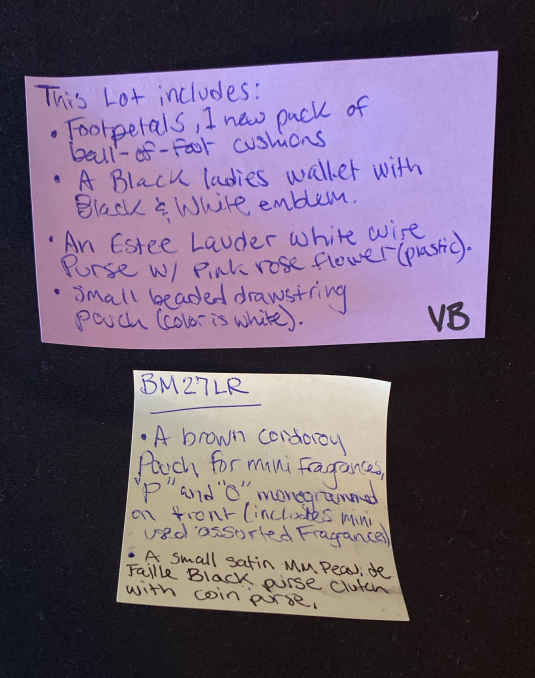 This Lot includes:
• Footpetals, 1 new pack of
ball-of-foot cushions
• A Black ladies wallet with
Black & White emblem.
• An Estee Lauder white wire
Purse w/ Pink rose flower (plastic).
• Small beaded drawstring
pouch (color is white).
VB
BM27LR
• A brown cordoroy
Pouch for mini Fragrances,
"P" and "O" monogrammed
on front (includes mini
used assorted Fragrances)
• A small satin MM Peau, de
Faille Black purse Clutch
with coin purse.